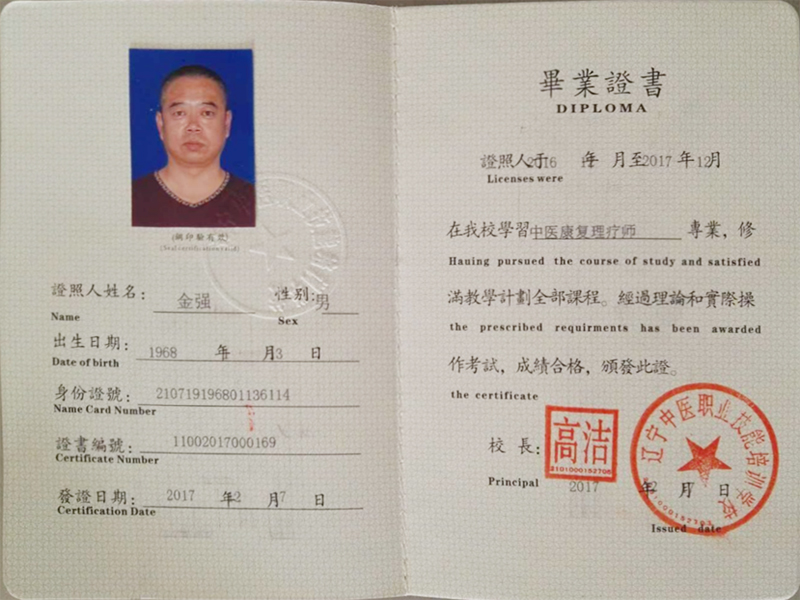 (鋼印驗有效)
證照人姓名： 金强 性别: 男
Name Sex
出生日期： 1968 年 月3 日
Date of birth
身份證號： 210719196801136114
Name Card Number
證書編號： 11002017000169
Certificate Number
發證日期： 2017 年2 月7 日
Certification Date
畢業證書
DIPLOMA
證照人于2016 年 月至2017年12月
Licenses were
在我校學習中医康复理疗师 專業，修
Hauing pursued the course of study and satisfied
滿教學計劃全部課程。經過理論和實際操
the prescribed requirments has been awarded
作考試，成績合格，頒發此證。
the certificate
校長： 高洁
2101000152706
Principal 2017 年2 月7 日
Issued date
辽宁中医职业技能培训学校